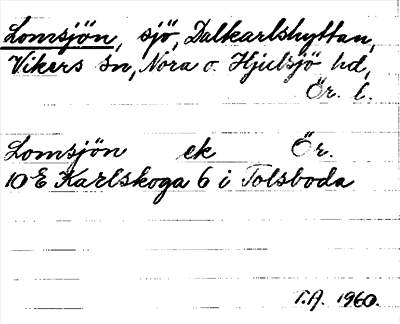 Lomsjön, sjö, Dalkarlshyttan,
Vikers sn, Nora o. Hjulsjö hd,
Ör. l.
Lomsjön ek Ör.
10E Karlskoga 6 i Tolsboda
T.A. 1960.